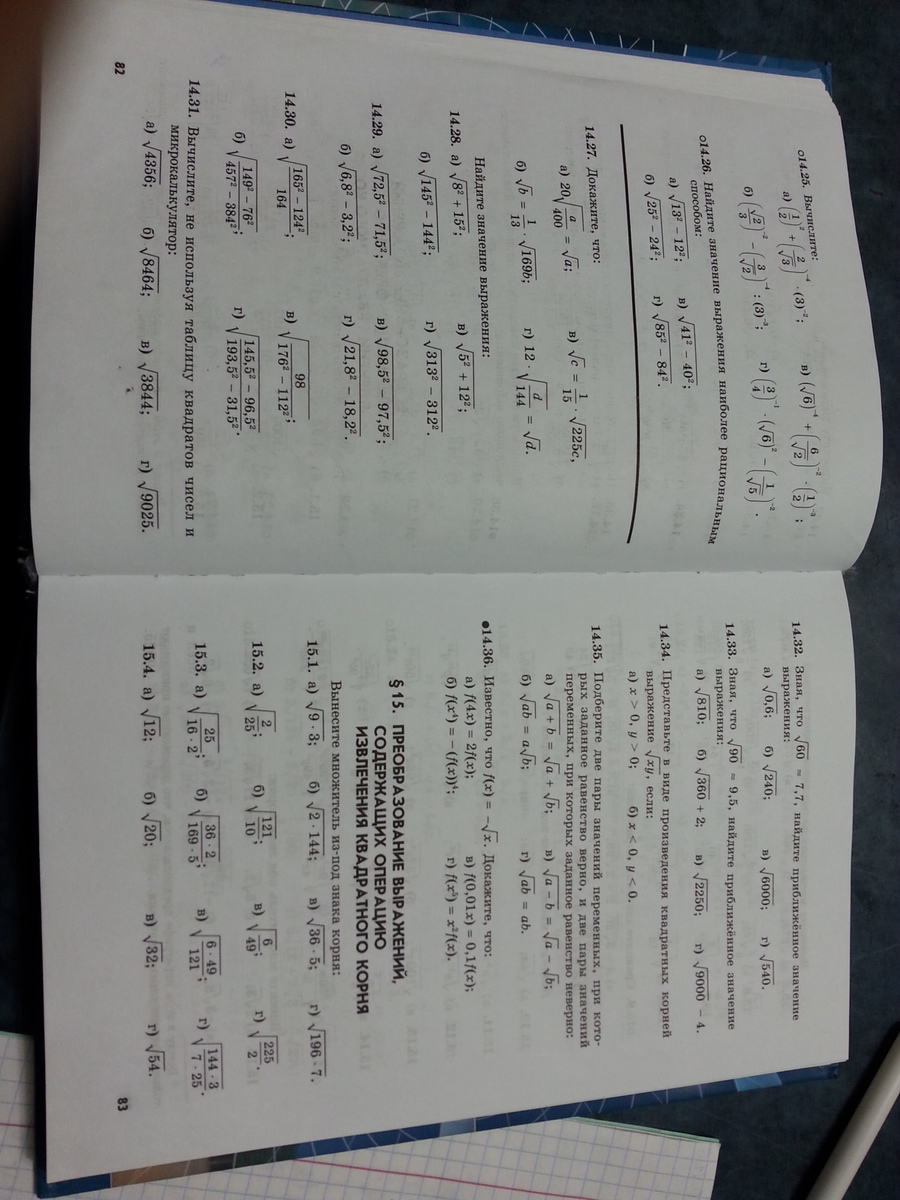 о14.25. Вычислите:
а) (1/2)² + (2/√3)⁻⁴ · (3)⁻²; в) (√6)⁻⁴ + (6/√2)⁻² · (1/2)⁻³;
б) (√2/3)⁻² − (3/√2)⁻⁴ : (3)⁻³; г) (3/4)⁻¹ · (√6)² − (1/√5)⁻².
о14.26. Найдите значение выражения наиболее рациональным
способом:
а) √(13² − 12²); в) √(41² − 40²);
б) √(25² − 24²); г) √(85² − 84²).
14.27. Докажите, что:
а) 20√(a/400) = √a; в) √c = 1/15 · √(225c),
б) √b = 1/13 · √(169b); г) 12 · √(d/144) = √d.
Найдите значение выражения:
14.28. а) √(8² + 15²); в) √(5² + 12²);
б) √(145² − 144²); г) √(313² − 312²).
14.29. а) √(72,5² − 71,5²); в) √(98,5² − 97,5²);
б) √(6,8² − 3,2²); г) √(21,8² − 18,2²).
14.30. а) √((165² − 124²)/164); в) √(98/(176² − 112²));
б) √((149² − 76²)/(457² − 384²)); г) √((145,5² − 96,5²)/(193,5² − 31,5²)).
14.31. Вычислите, не используя таблицу квадратов чисел и
микрокалькулятор:
а) √4356; б) √8464; в) √3844; г) √9025.
82
14.32. Зная, что √60 ≈ 7,7, найдите приближённое значение
выражения:
а) √0,6; б) √240; в) √6000; г) √540.
14.33. Зная, что √90 ≈ 9,5, найдите приближённое значение
выражения:
а) √810; б) √360 + 2; в) √2250; г) √9000 − 4.
14.34. Представьте в виде произведения квадратных корней
выражение √(xy), если:
а) x > 0, y > 0; б) x < 0, y < 0.
14.35. Подберите две пары значений переменных, при кото-
рых заданное равенство верно, и две пары значений
переменных, при которых заданное равенство неверно:
а) √(a + b) = √a + √b; в) √(a − b) = √a − √b;
б) √(ab) = a√b; г) √(ab) = ab.
●14.36. Известно, что f(x) = −√x. Докажите, что:
а) f(4x) = 2f(x); в) f(0,01x) = 0,1f(x);
б) f(x⁴) = −(f(x))⁴; г) f(x⁵) = x²f(x).
§ 15. ПРЕОБРАЗОВАНИЕ ВЫРАЖЕНИЙ,
СОДЕРЖАЩИХ ОПЕРАЦИЮ
ИЗВЛЕЧЕНИЯ КВАДРАТНОГО КОРНЯ
Вынесите множитель из-под знака корня:
15.1. а) √(9 · 3); б) √(2 · 144); в) √(36 · 5); г) √(196 · 7).
15.2. а) √(2/25); б) √(121/10); в) √(6/49); г) √(225/2).
15.3. а) √(25/(16 · 2)); б) √((36 · 2)/(169 · 5)); в) √((6 · 49)/121); г) √((144 · 3)/(7 · 25)).
15.4. а) √12; б) √20; в) √32; г) √54.
83